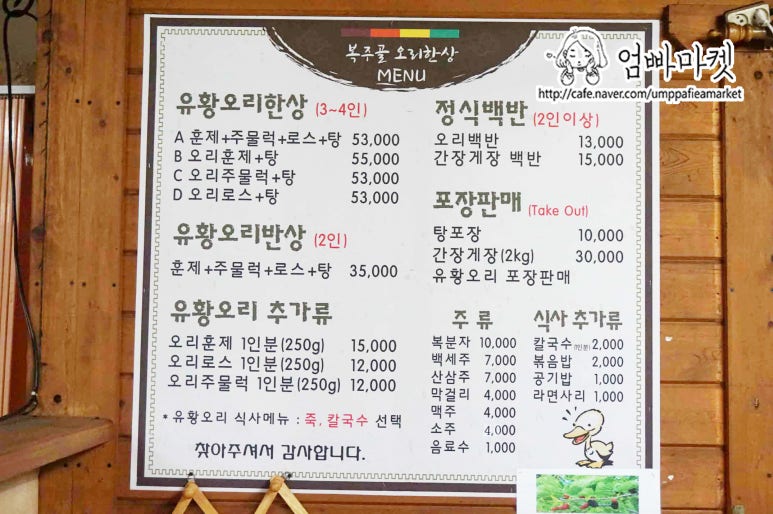 복주골 오리한상
MENU
엄빠마켓
http://cafe.naver.com/umppafleamarket
유황오리한상 (3~4인)
A 훈제+주물럭+로스+탕 53,000
B 오리훈제+탕 55,000
C 오리주물럭+탕 53,000
D 오리로스+탕 53,000
유황오리반상 (2인)
훈제+주물럭+로스+탕 35,000
유황오리 추가류
오리훈제 1인분(250g) 15,000
오리로스 1인분(250g) 12,000
오리주물럭 1인분(250g) 12,000
* 유황오리 식사메뉴 : 죽, 칼국수 선택
찾아주셔서 감사합니다.
정식백반 (2인이상)
오리백반 13,000
간장게장 백반 15,000
포장판매 (Take Out)
탕포장 10,000
간장게장(2kg) 30,000
유황오리 포장판매
주 류
복분자 10,000
백세주 7,000
산삼주 7,000
막걸리 4,000
맥주 4,000
소주 4,000
음료수 1,000
식사 추가류
칼국수(1인분) 2,000
볶음밥 2,000
공기밥 1,000
라면사리 1,000